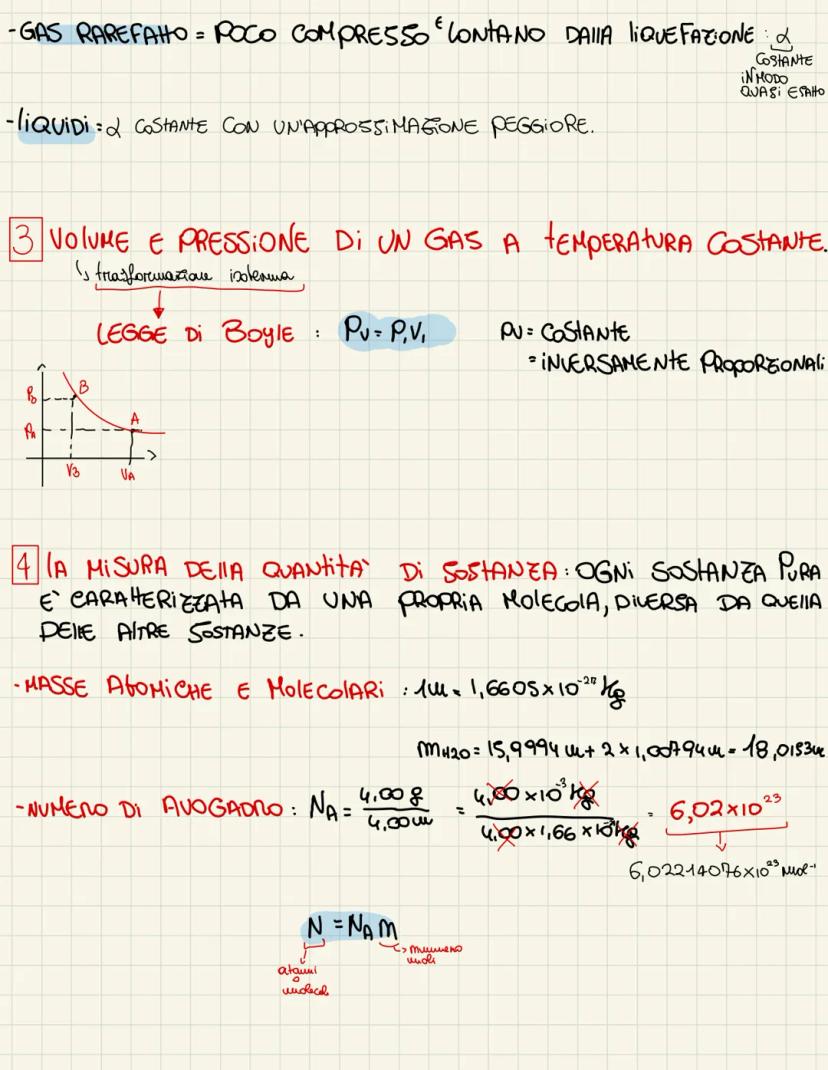 - GAS RAREFATTO = POCO COMPRESSO E LONTANO DALLA LIQUEFAZIONE : α
COSTANTE
IN MODO
QUASI ESATTO
- LIQUIDI : α COSTANTE CON UN'APPROSSIMAZIONE PEGGIORE.
3 VOLUME E PRESSIONE DI UN GAS A TEMPERATURA COSTANTE.
↳ trasformazione isoterma
LEGGE DI BOYLE : PV = P₁V₁
PV = COSTANTE
= INVERSAMENTE PROPORZIONALI
PB B
PA A
VB VA
4 LA MISURA DELLA QUANTITA' DI SOSTANZA : OGNI SOSTANZA PURA
E' CARATTERIZZATA DA UNA PROPRIA MOLECOLA, DIVERSA DA QUELLA
DELLE ALTRE SOSTANZE.
- MASSE ATOMICHE E MOLECOLARI : 1u = 1,6605 x 10⁻²⁷ Kg
mH2O = 15,9994 u + 2 x 1,00794 u = 18,0153u
- NUMERO DI AVOGADRO : NA = 4,00 g / 4,00 u = 4,00 x 10⁻³ Kg / 4,00 x 1,66 x 10⁻²⁷ Kg = 6,02 x 10²³
6,02214076 x 10²³ mol⁻¹
N = NA m
atomi
o
molecole
→ numero
moli